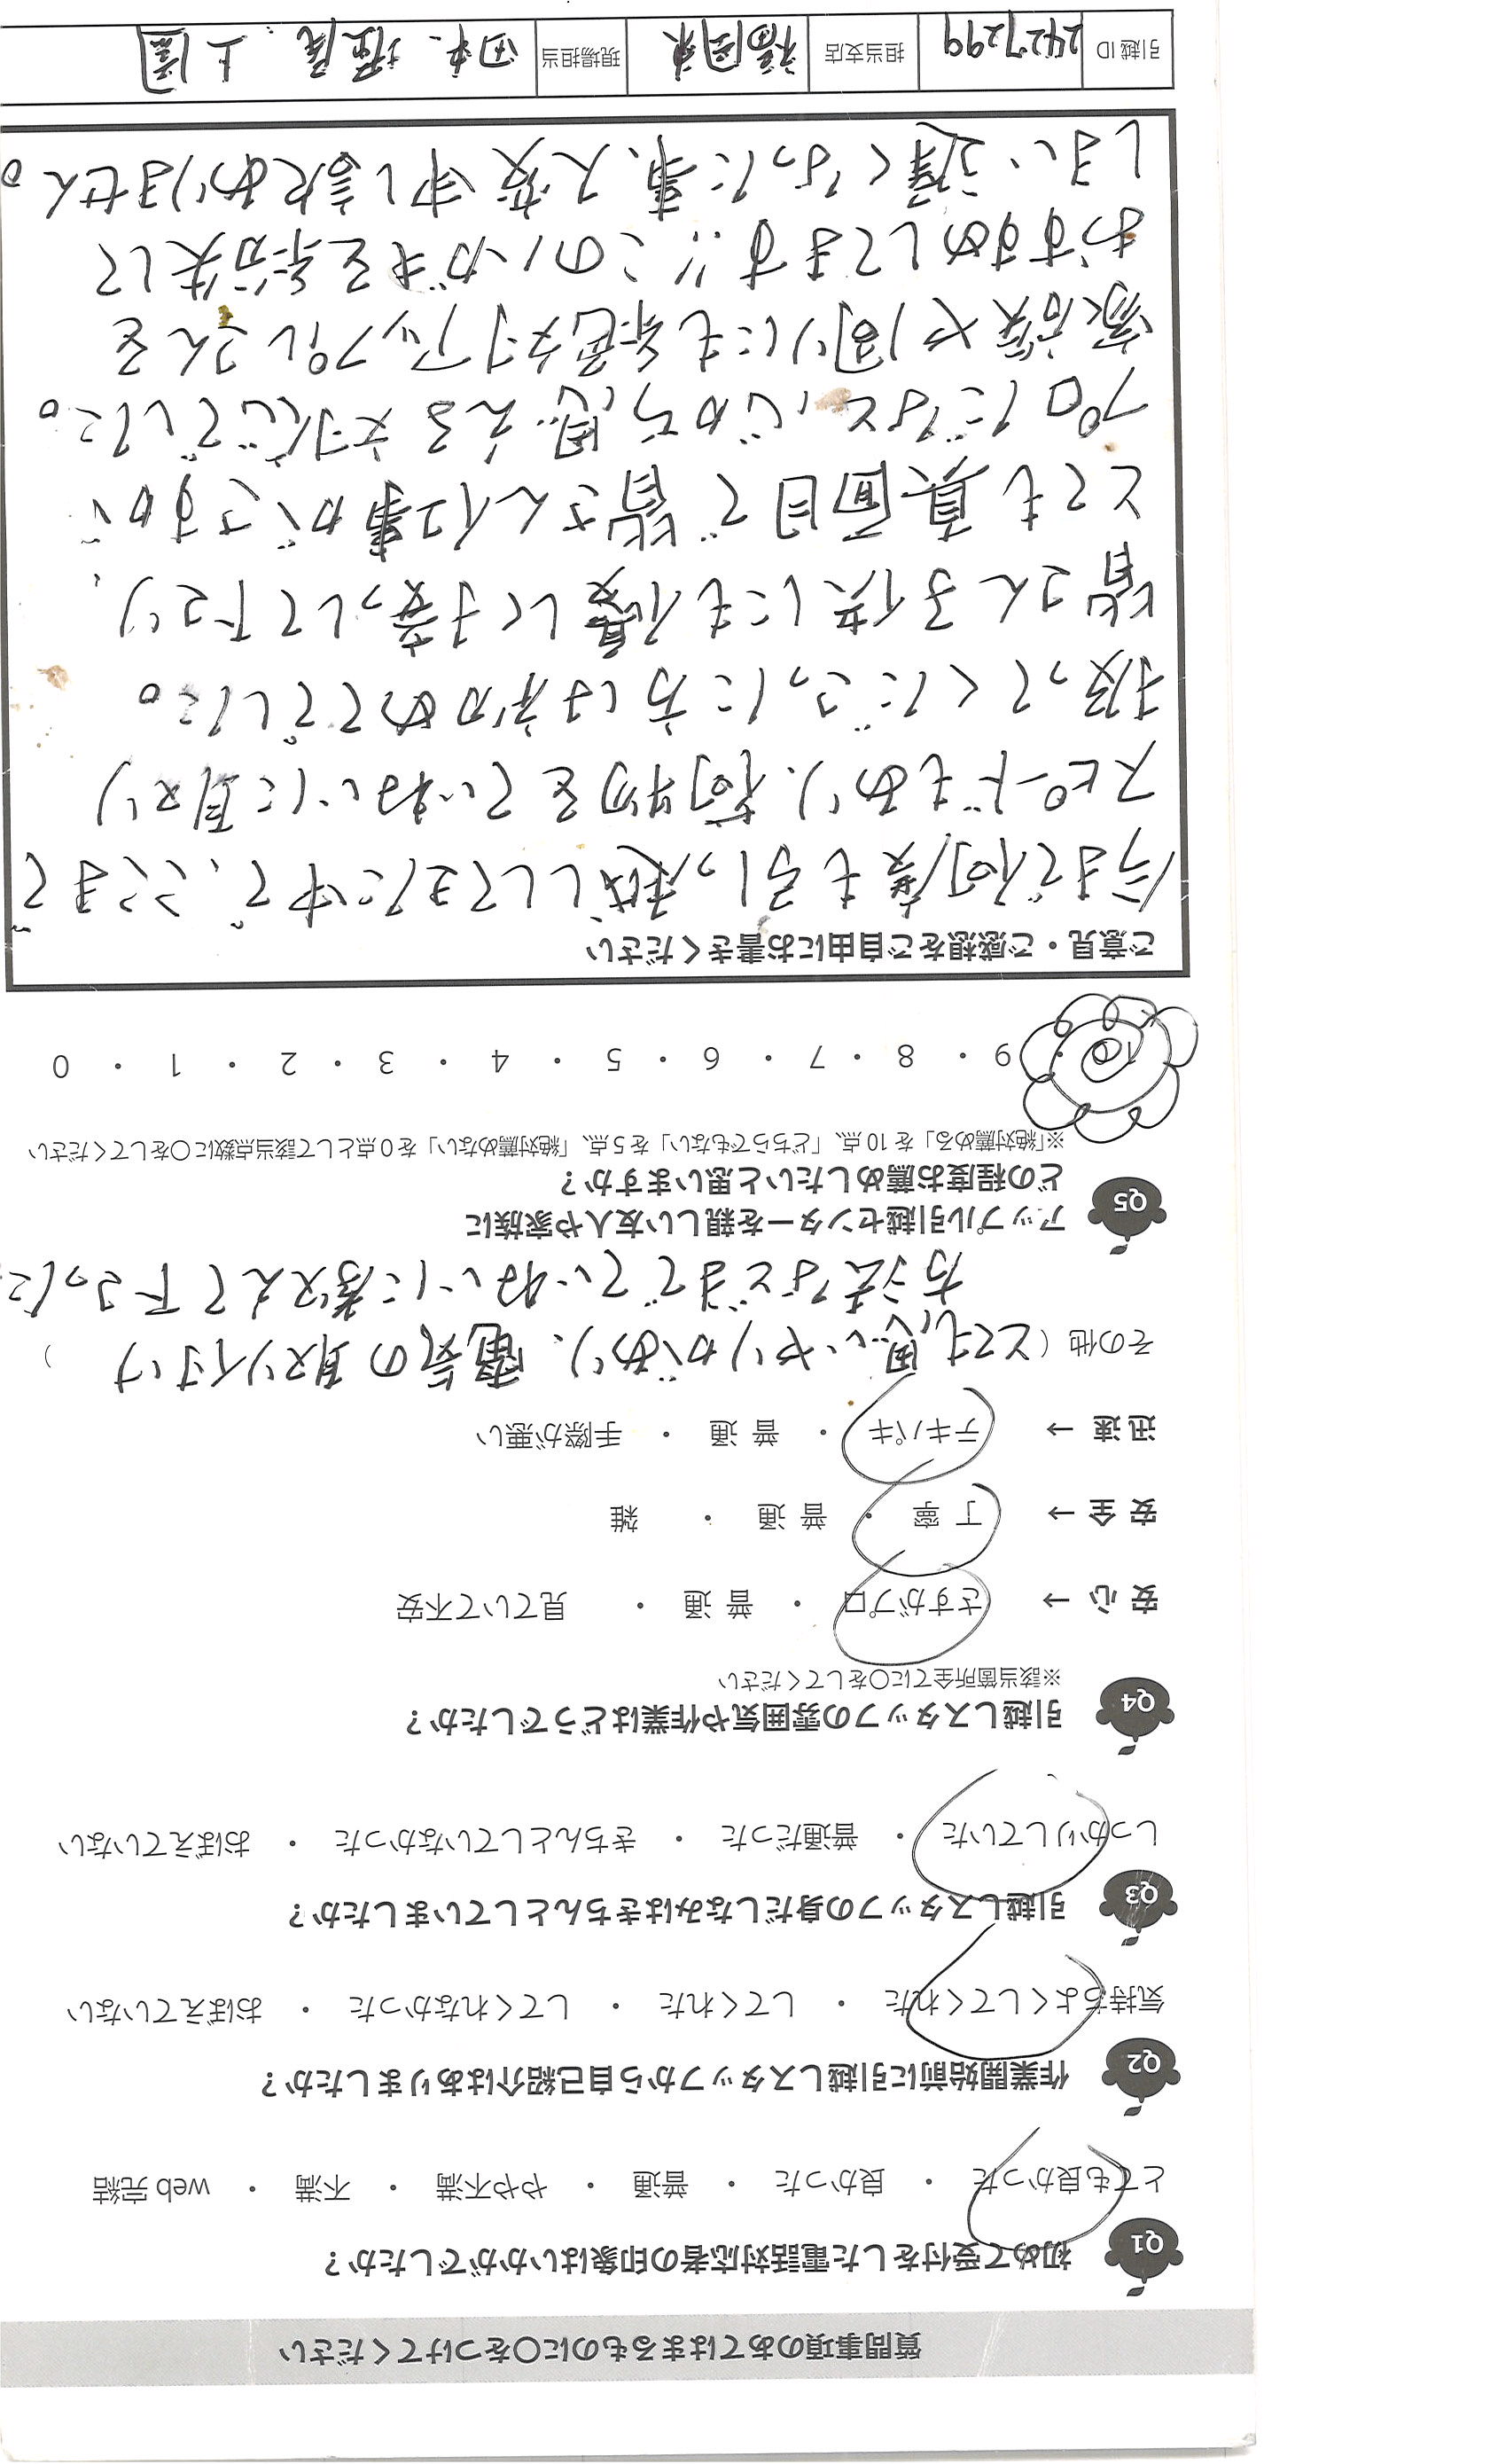 質問事項のあてはまるものに○をつけてください
Q1 初めて受付をした電話対応者の印象はいかがでしたか？
とても良かった ・ 良かった ・ 普通 ・ やや不満 ・ 不満 ・ web 完結
Q2 作業開始前に引越しスタッフから自己紹介はありましたか？
気持ちよくしてくれた ・ してくれた ・ してくれなかった ・ おぼえていない
Q3 引越しスタッフの身だしなみはきちんとしていましたか？
しっかりしていた ・ 普通だった ・ きちんとしていなかった ・ おぼえていない
Q4 引越しスタッフの雰囲気や作業はどうでしたか？
※該当箇所全てに○をしてください
安心 → さすがプロ ・ 普通 ・ 見ていて不安
安全 → 丁寧 ・ 普通 ・ 雑
迅速 → テキパキ ・ 普通 ・ 手際が悪い
その他（とても思いやりがあり、電気の取り付け）
方法などまでていねいに考えて下さった
Q5 アップル引越センターを親しい友人や家族に
どの程度お薦めしたいと思いますか？
※「絶対薦める」を10点、「どちらでもない」を5点、「絶対薦めない」を0点として該当点数に○をしてください
10 ・ 9 ・ 8 ・ 7 ・ 6 ・ 5 ・ 4 ・ 3 ・ 2 ・ 1 ・ 0
ご意見・ご感想をご自由にお書きください
今まで何度も引っ越ししてきた中で、ここまで
スピードもあり、荷物をていねいに取り
扱ってくださった方は初めてでした。
皆さん子供にも優しく接して下さり、
とても真面目で皆さん仕事がさすが
プロだなと、心から思える対応でした。
家族や周りにも絶対アップルさんを
おすすめしてます!! このハガキを紛失して
しまい遅くなった事、大変申し訳ありません。
引越ID 2427299 担当支店 福岡東 現場担当 田中、堀尾、上園